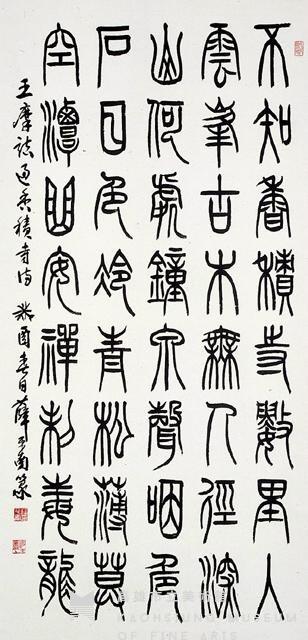 不知香積寺數里入
雲峯古木無人徑深
山何處鐘泉聲咽危
石日色冷青松薄莫
空潭曲安禪制毒龍
王摩詰過香積寺詩 癸酉春日薛平南篆
高雄市立美術館
KAOHSIUNG MUSEUM
OF FINE ARTS